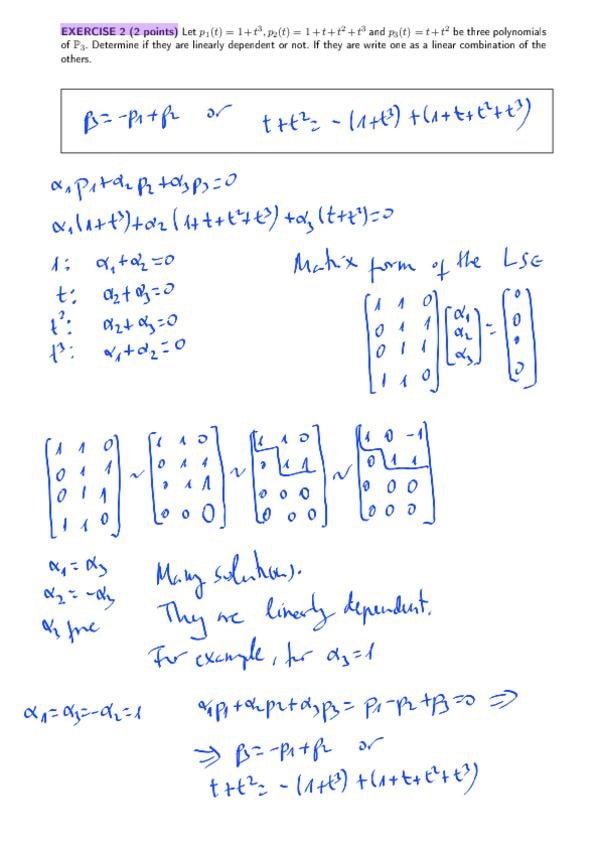 EXERCISE 2 (2 points) Let p₁(t) = 1+t³, p₂(t) = 1+t+t²+t³ and p₃(t) = t+t² be three polynomials
of ℙ₃. Determine if they are linearly dependent or not. If they are write one as a linear combination of the
others.
p₃=-p₁+p₂ or t+t²= -(1+t³)+(1+t+t²+t³)
α₁p₁+α₂p₂+α₃p₃=0
α₁(1+t³)+α₂(1+t+t²+t³)+α₃(t+t²)=0
1: α₁+α₂=0
t: α₂+α₃=0
t²: α₂+α₃=0
t³: α₁+α₂=0
Matrix form of the LSE
[1 1 0; 0 1 1; 0 1 1; 1 1 0] [α₁; α₂; α₃] = [0; 0; 0; 0]
[1 1 0; 0 1 1; 0 1 1; 1 1 0] ~ [1 1 0; 0 1 1; 0 1 1; 0 0 0] ~ [1 1 0; 0 1 1; 0 0 0; 0 0 0] ~ [1 0 -1; 0 1 1; 0 0 0; 0 0 0]
α₁=α₃
α₂=-α₃
α₃ free
Many solutions.
They are linearly dependent.
For example, for α₃=1
α₁=α₃=-α₂=1 α₁p₁+α₂p₂+α₃p₃= p₁-p₂+p₃=0 ⇒
⇒ p₃=-p₁+p₂ or
t+t²= -(1+t³)+(1+t+t²+t³)